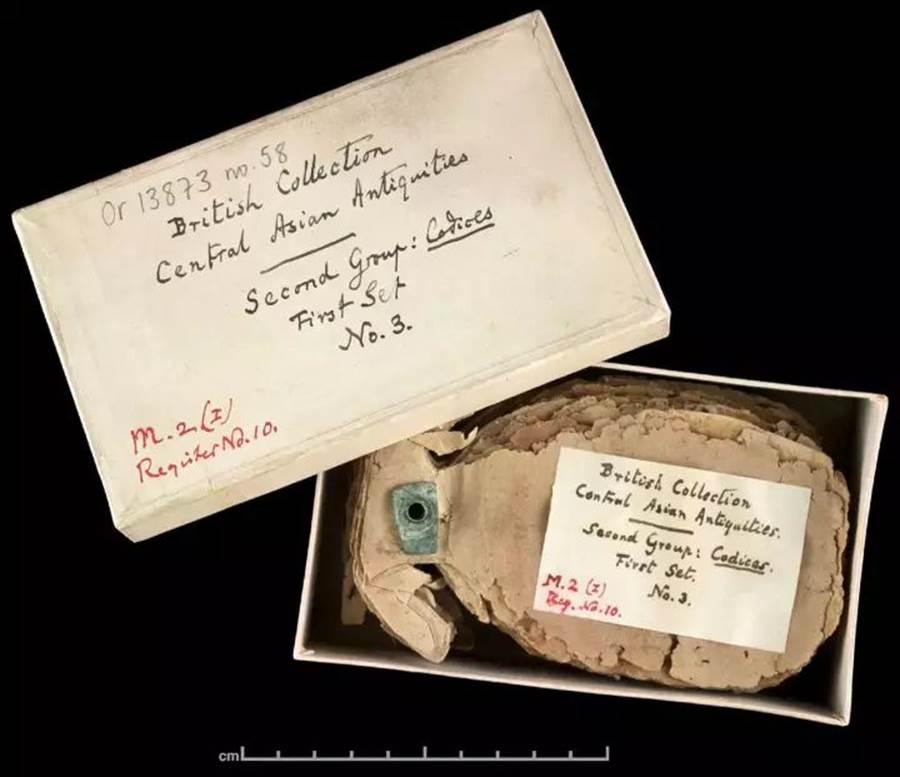 Or 13873 no. 58
British Collection
Central Asian Antiquities
Second Group: Codices
First Set
No. 3.
M. 2 (I)
Register No. 10.
British Collection
Central Asian Antiquities.
Second Group: Codices.
First Set.
No. 3.
M. 2 (I)
Reg. No. 10.
cm